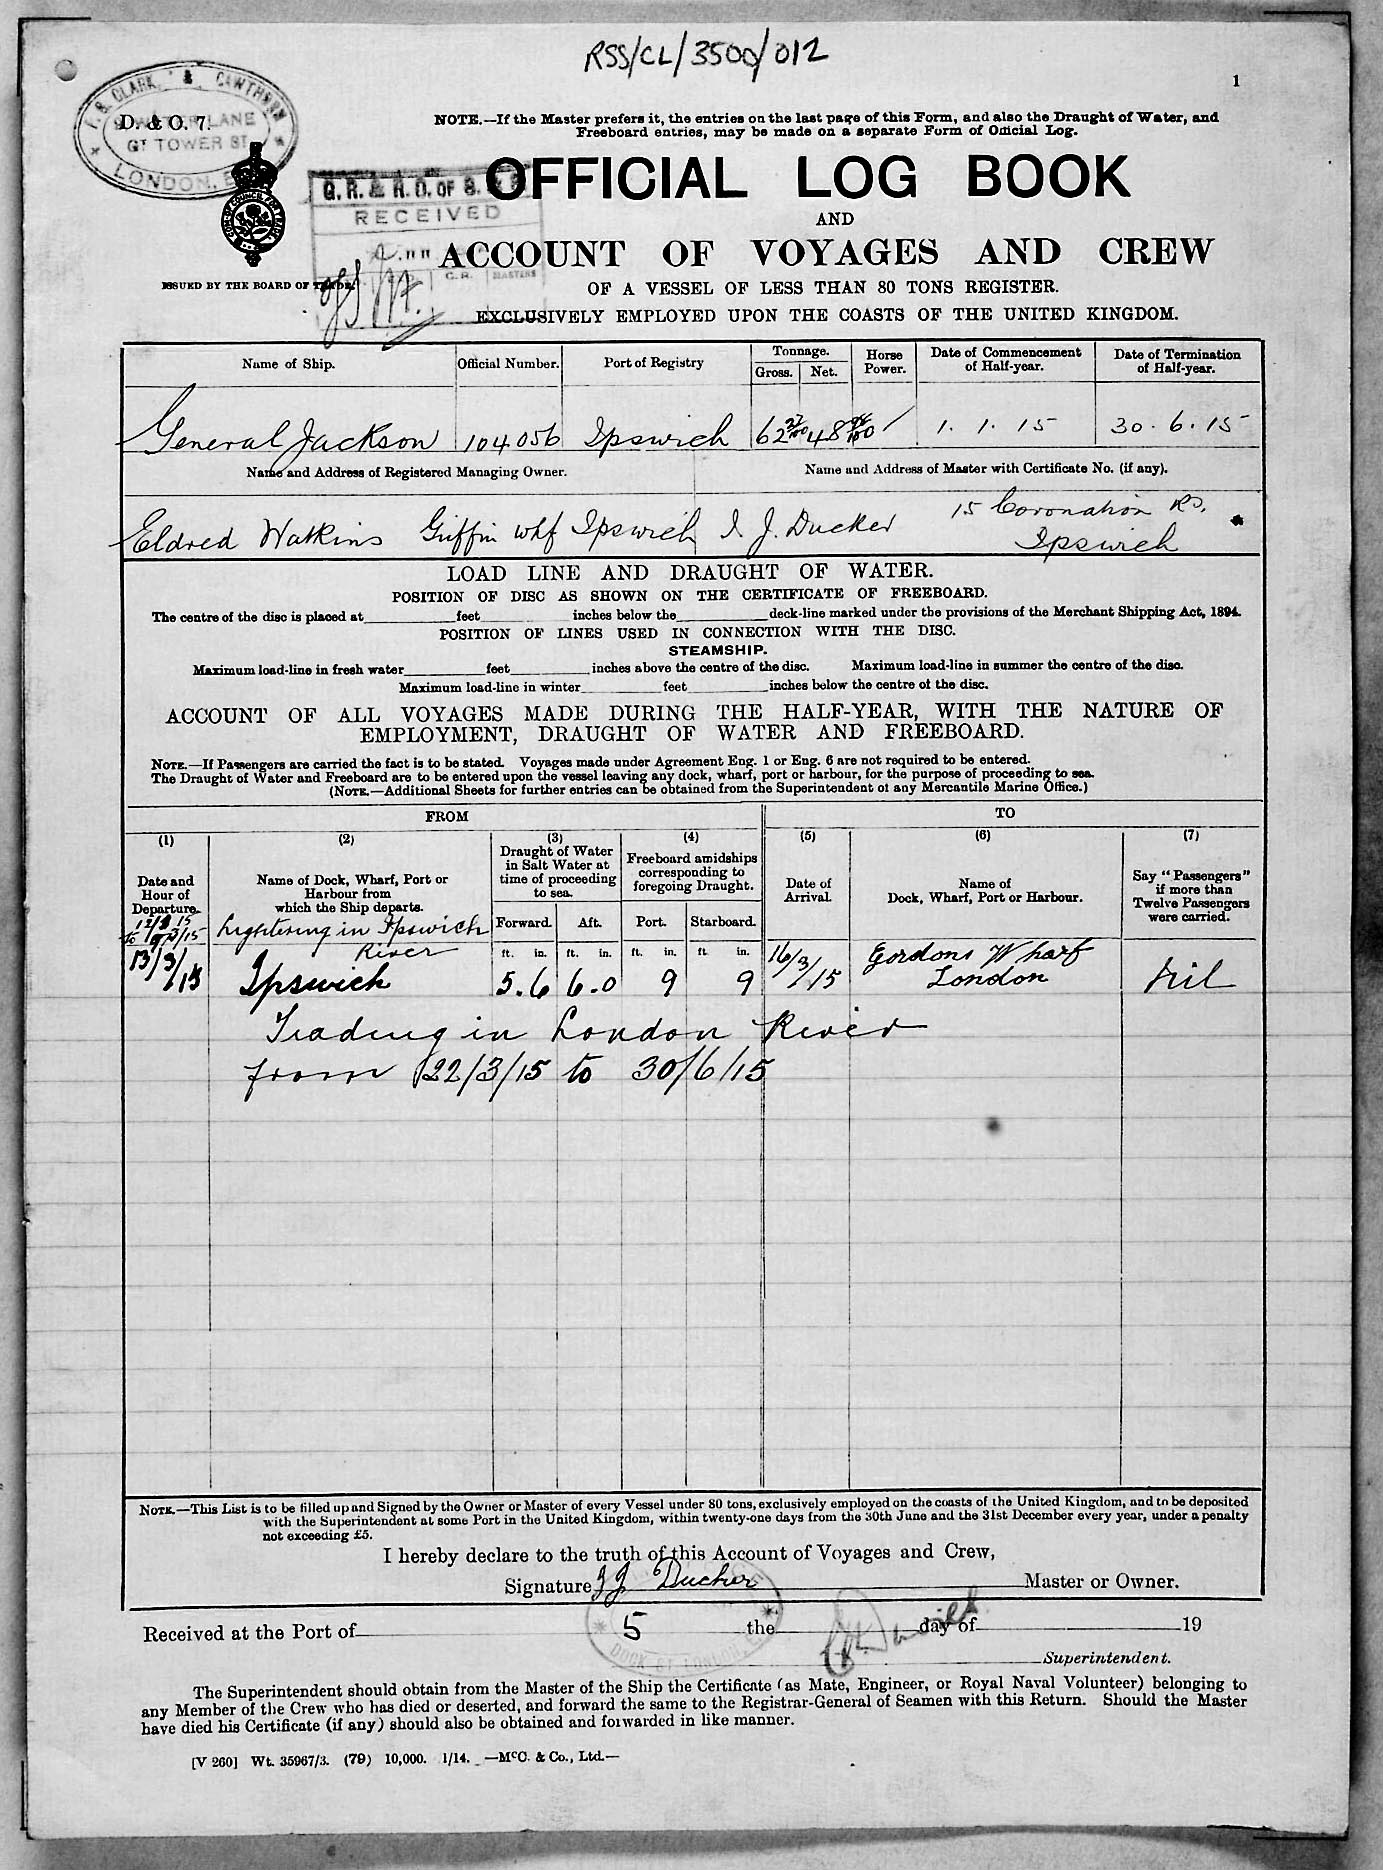 RSS/CL/3500/012
1
F. S. CLARK & CAWTHORN
D. & O. 7.
WATER LANE
GT TOWER ST
LONDON, E.
NOTE.—If the Master prefers it, the entries on the last page of this Form, and also the Draught of Water, and
Freeboard entries, may be made on a separate Form of Official Log.
G. R. & R. O. OF S. & S.
RECEIVED
C.R. MASTERS
OFFICIAL LOG BOOK
AND
ACCOUNT OF VOYAGES AND CREW
ISSUED BY THE BOARD OF TRADE.
OF A VESSEL OF LESS THAN 80 TONS REGISTER.
EXCLUSIVELY EMPLOYED UPON THE COASTS OF THE UNITED KINGDOM.
Name of Ship. Official Number. Port of Registry Tonnage. Gross. Net. Horse Power. Date of Commencement of Half-year. Date of Termination of Half-year.
General Jackson 104056 Ipswich 62 48 1.1.15 30.6.15
Name and Address of Registered Managing Owner. Name and Address of Master with Certificate No. (if any).
Eldred Watkins Griffin whf Ipswich I. J. Ducker 15 Coronation Rd.
Ipswich
LOAD LINE AND DRAUGHT OF WATER.
POSITION OF DISC AS SHOWN ON THE CERTIFICATE OF FREEBOARD.
The centre of the disc is placed at feet inches below the deck-line marked under the provisions of the Merchant Shipping Act, 1894.
POSITION OF LINES USED IN CONNECTION WITH THE DISC.
STEAMSHIP.
Maximum load-line in fresh water feet inches above the centre of the disc. Maximum load-line in summer the centre of the disc.
Maximum load-line in winter feet inches below the centre of the disc.
ACCOUNT OF ALL VOYAGES MADE DURING THE HALF-YEAR, WITH THE NATURE OF
EMPLOYMENT, DRAUGHT OF WATER AND FREEBOARD.
NOTE.—If Passengers are carried the fact is to be stated. Voyages made under Agreement Eng. 1 or Eng. 6 are not required to be entered.
The Draught of Water and Freeboard are to be entered upon the vessel leaving any dock, wharf, port or harbour, for the purpose of proceeding to sea.
(NOTE.—Additional Sheets for further entries can be obtained from the Superintendent of any Mercantile Marine Office.)
FROM TO
(1) (2) (3) (4) (5) (6) (7)
Date and Hour of Departure. Name of Dock, Wharf, Port or Harbour from which the Ship departs. Draught of Water in Salt Water at time of proceeding to sea. Freeboard amidships corresponding to foregoing Draught. Date of Arrival. Name of Dock, Wharf, Port or Harbour. Say "Passengers" if more than Twelve Passengers were carried.
Forward. Aft. Port. Starboard.
to Lightering in Ipswich River
ft. in. ft. in. ft. in. ft. in.
13/3/15 Ipswich 5.6 6.0 9 9 16/3/15 Gordons Wharf London Nil
Trading in London River
from 22/3/15 to 30/6/15
NOTE.—This List is to be filled up and Signed by the Owner or Master of every Vessel under 80 tons, exclusively employed on the coasts of the United Kingdom, and to be deposited
with the Superintendent at some Port in the United Kingdom, within twenty-one days from the 30th June and the 31st December every year, under a penalty
not exceeding £5.
I hereby declare to the truth of this Account of Voyages and Crew,
Signature I J Ducker Master or Owner.
Received at the Port of 5 the day of 19
DOCK ST LONDON, E.
Superintendent.
The Superintendent should obtain from the Master of the Ship the Certificate (as Mate, Engineer, or Royal Naval Volunteer) belonging to
any Member of the Crew who has died or deserted, and forward the same to the Registrar-General of Seamen with this Return. Should the Master
have died his Certificate (if any) should also be obtained and forwarded in like manner.
[V 260] Wt. 35967/3. (79) 10,000. 1/14. —McC. & Co., Ltd.—